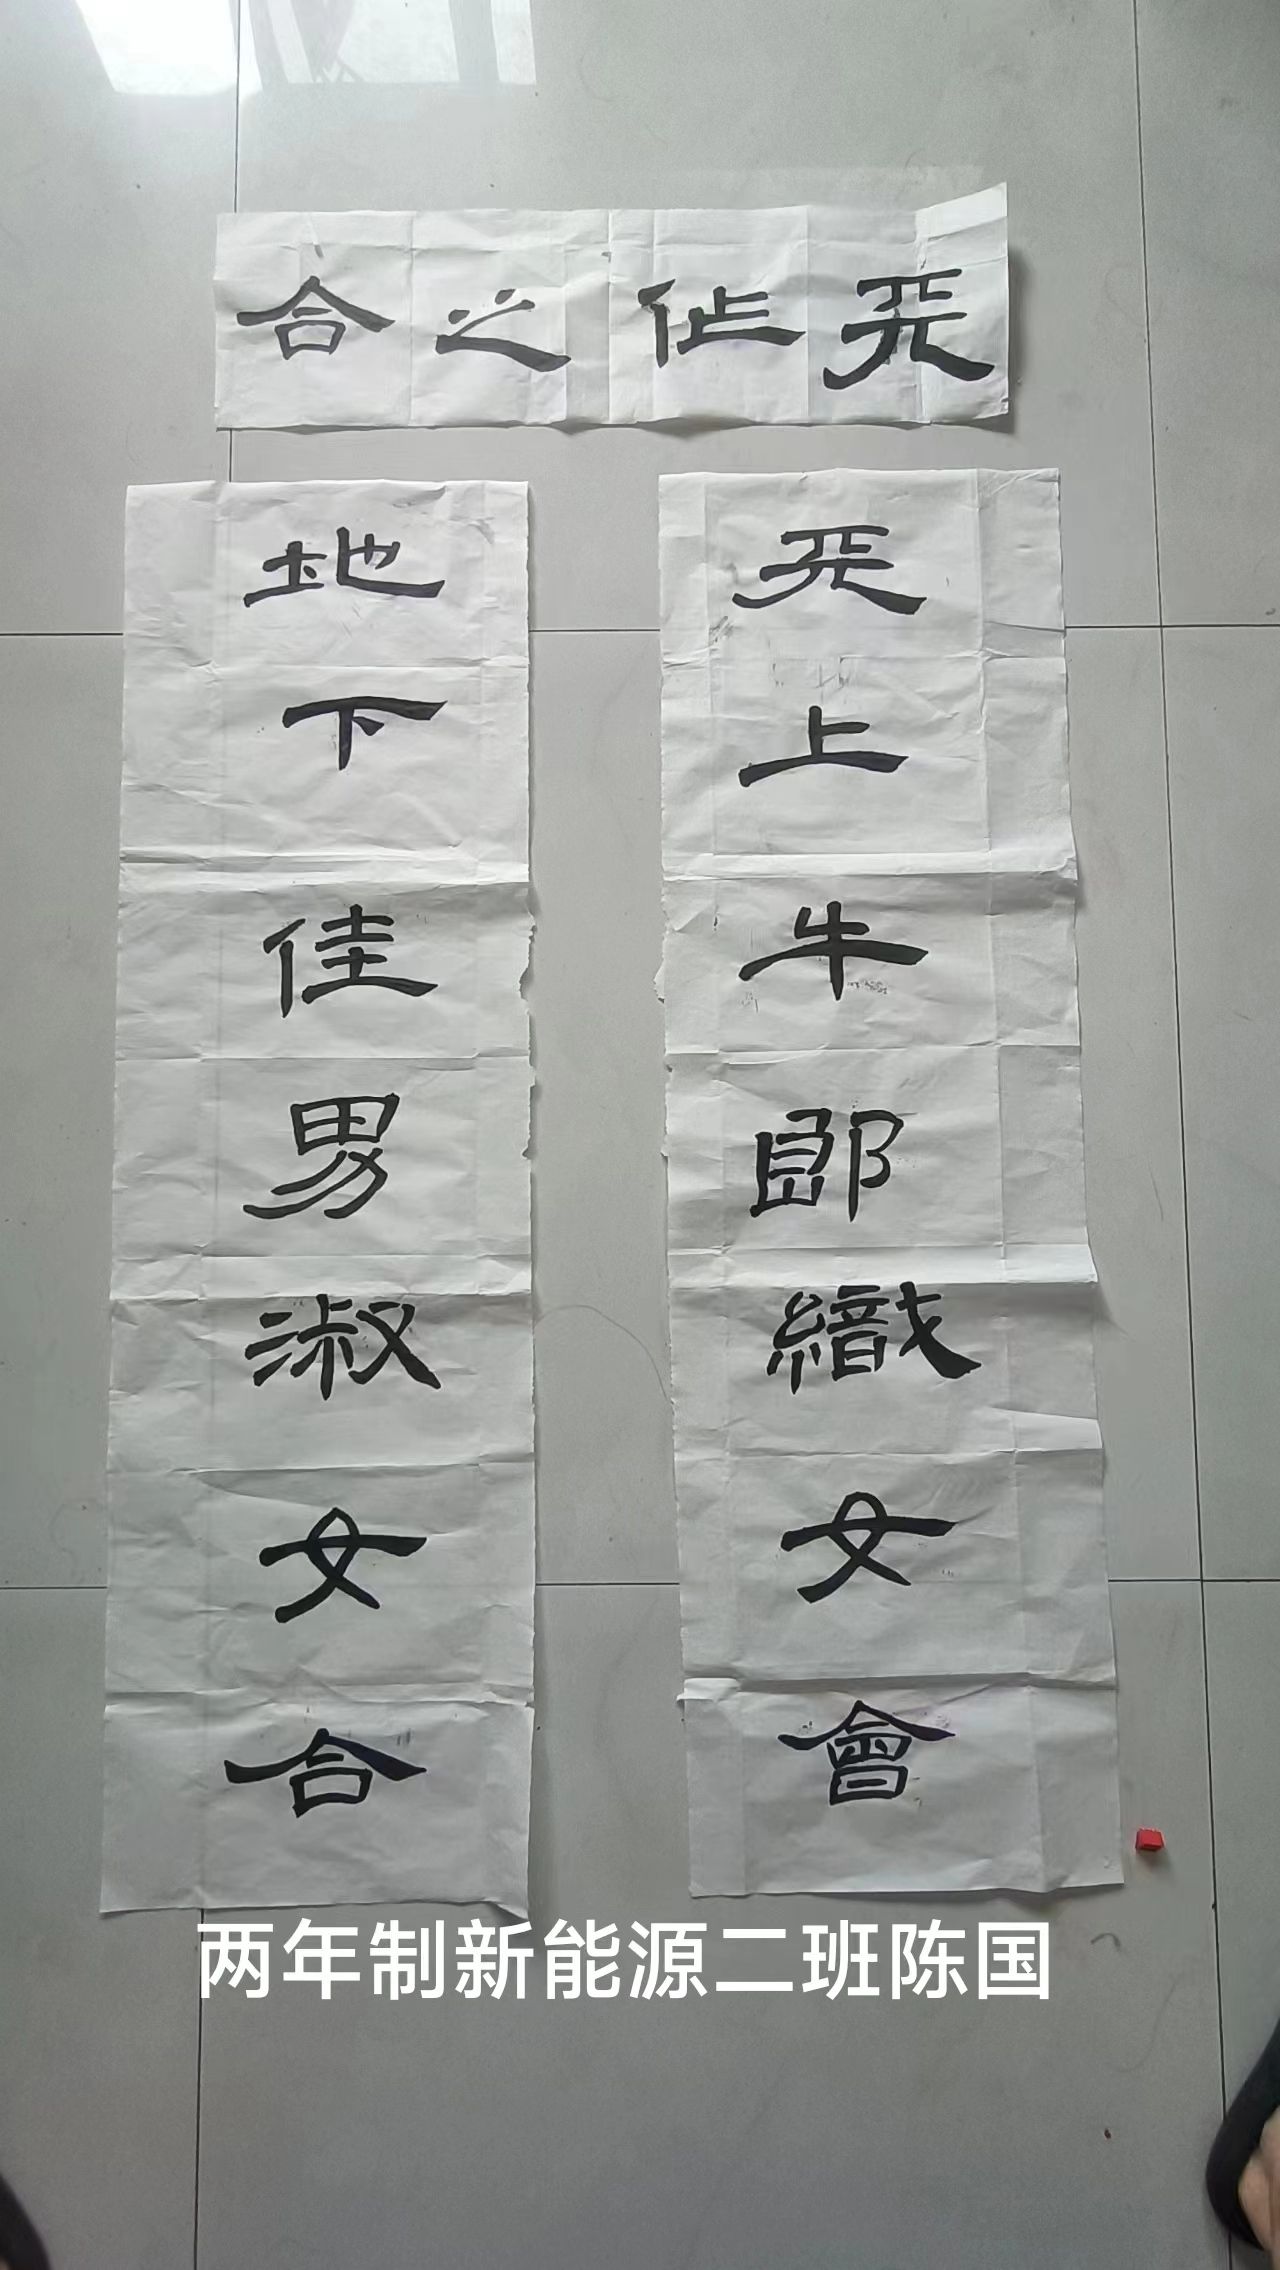 天作之合
天上牛郎織女會
地下佳男淑女合
两年制新能源二班陈国